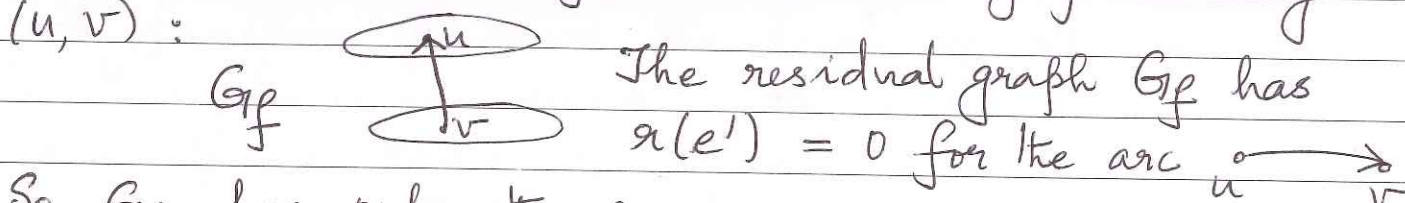 (u, v) :
u
G_f The residual graph G_f has
v r(e') = 0 for the arc
u v
So